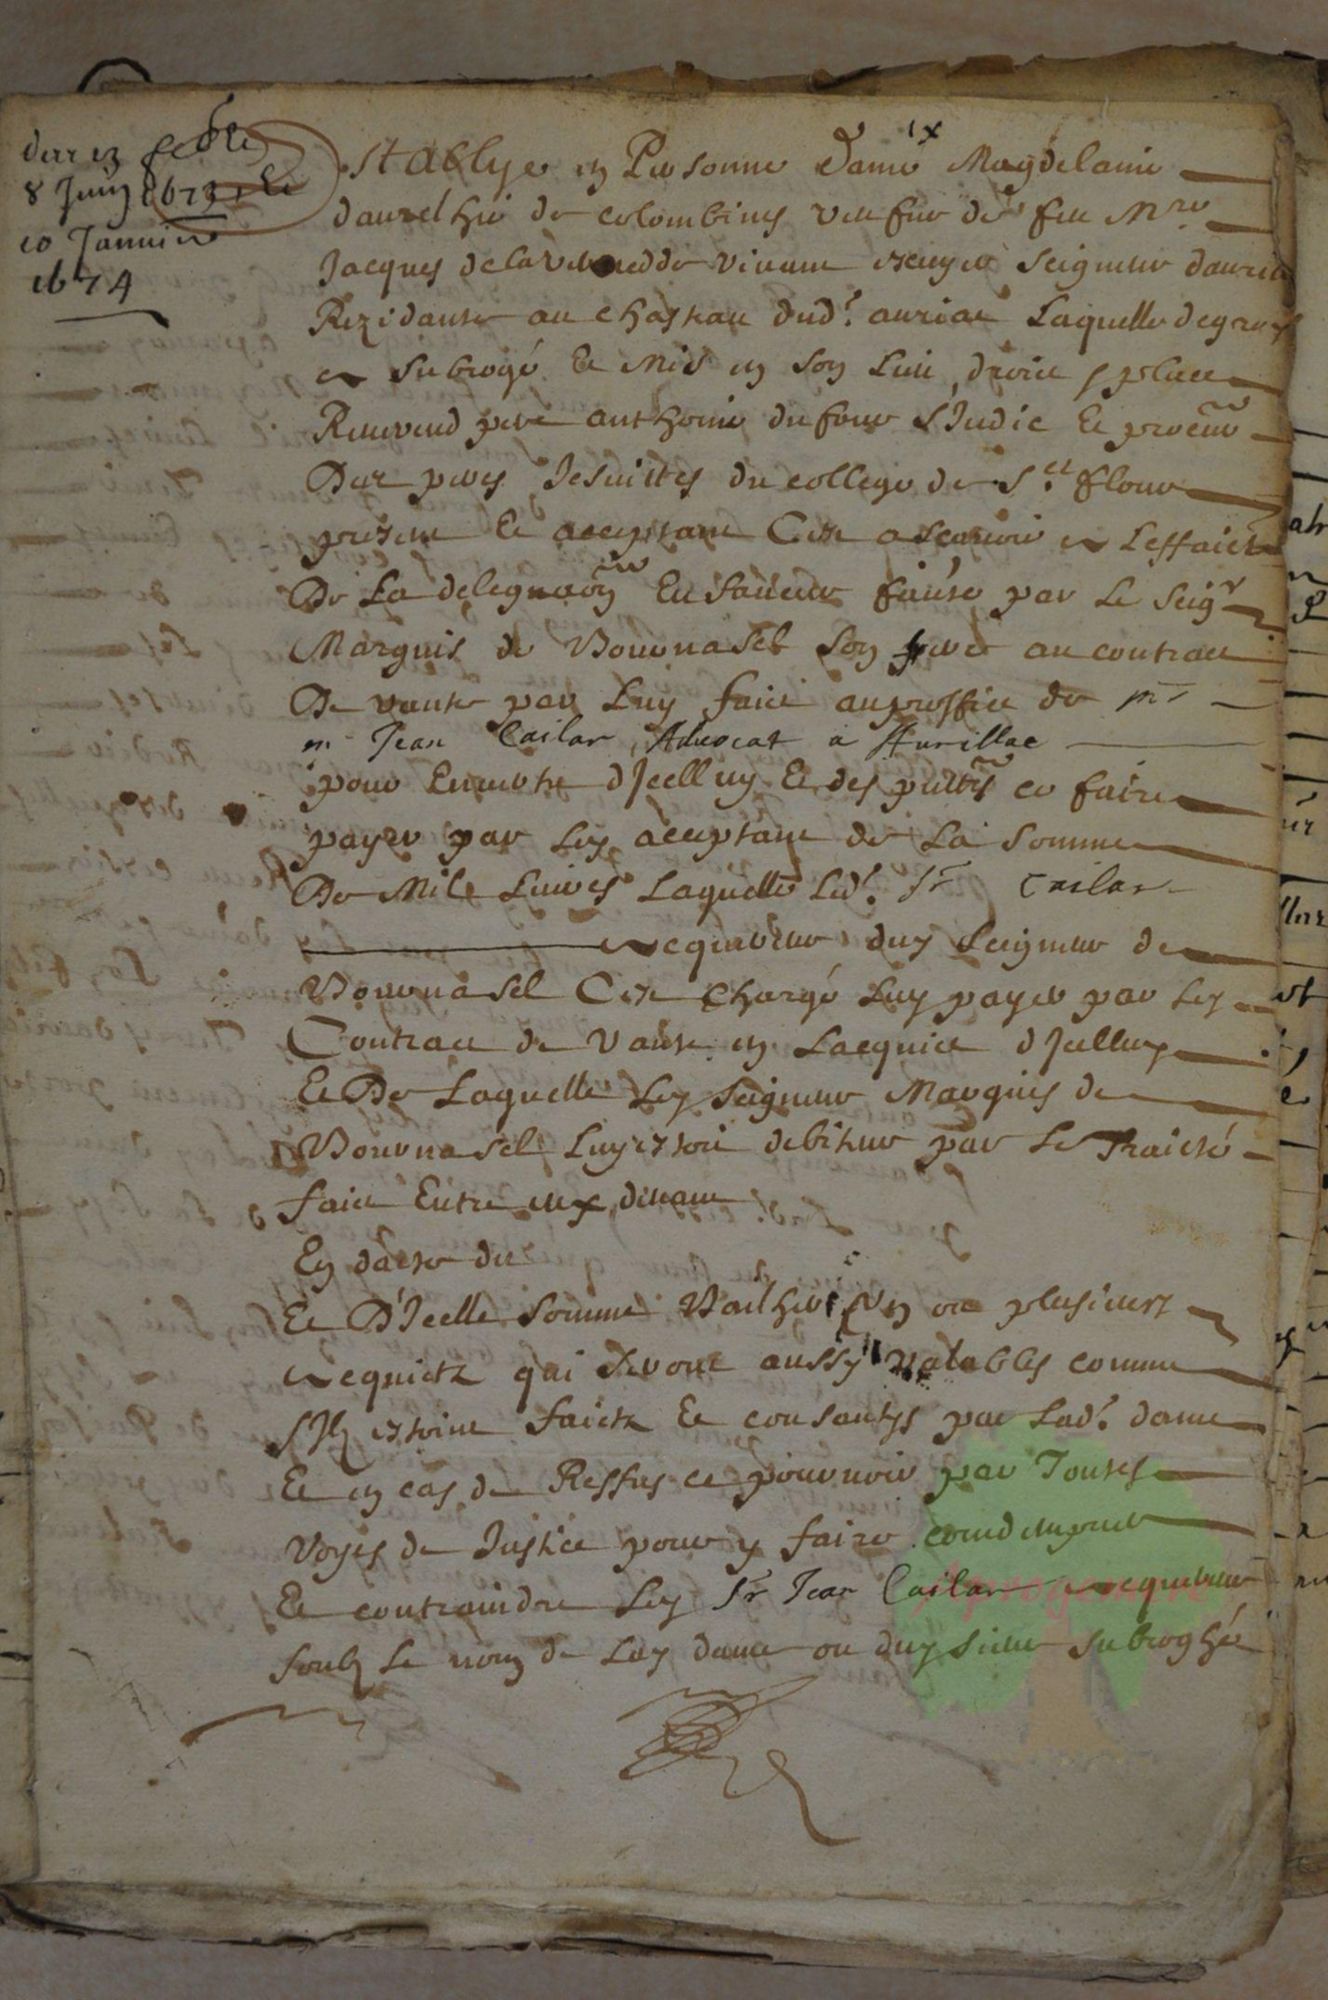 8 Juin 1673
10 Janvier
1674
ix
Establye en Personne Dame Magdelaine
daurelhie de colombines veufue de feu Mre
Jacques de la vivant escuyer Seigneur dauriac
Rezidante au chasteau dud. auriac Laquelle de gre
a subrogé Et Mis en son Lieu droict place
Reuerend pere anthoine dufour sindic Et procur
Des peres Jesuittes du college de St flour
present Et acceptant C'est ascauoir en L'effaict
De La delegaon En faueur faite par Le Seigr
Marquis de Bouonasel son au contract
De vante par Luy faict auproffict de mr
m Jean Cailar Aduocat a Aurillac
pour En vertu d'Icelluy Et des ce faire
payer par Led acceptant de La Somme
De Mile Liures Laquelle Led. sr Cailar
acquereur dud Seigneur de
Bouonasel C'est chargé Luy payer par Led
Contract de Vante en Lacquict d'Icelluy
Et De Laquelle Led Seigneur Marquis de
Bouonasel Luy estoit debiteur par Le Traicté
faict Entre eux disant
En datte du
Et D'Icelle Somme Bailher un ou plusieurs
acquictz qui seront aussy valables comme
s'Ilz estoint faictz Et consantys par Lad. dame
Et en cas de Reffus ce pouruoir par Toutes
Voyes de Justice pour y faire condempner
Et contraindre Led sr Jean Cailar acquereur
soubz Le nom de Lad dame ou dud sieur subroghé